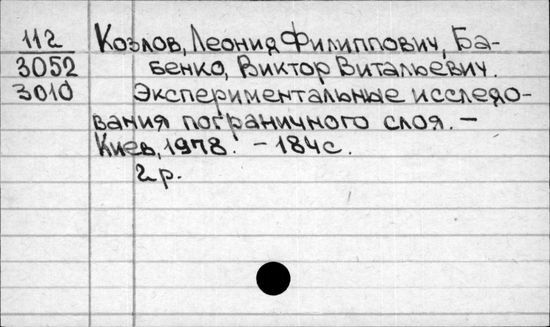 112 Козлов, Леонид Филиппович, Ба-
3052 бенко, Виктор Витальевич.
3010 Экспериментальные исследо-
вания пограничного слоя. –
Киев, 1978. – 184с.
2р.